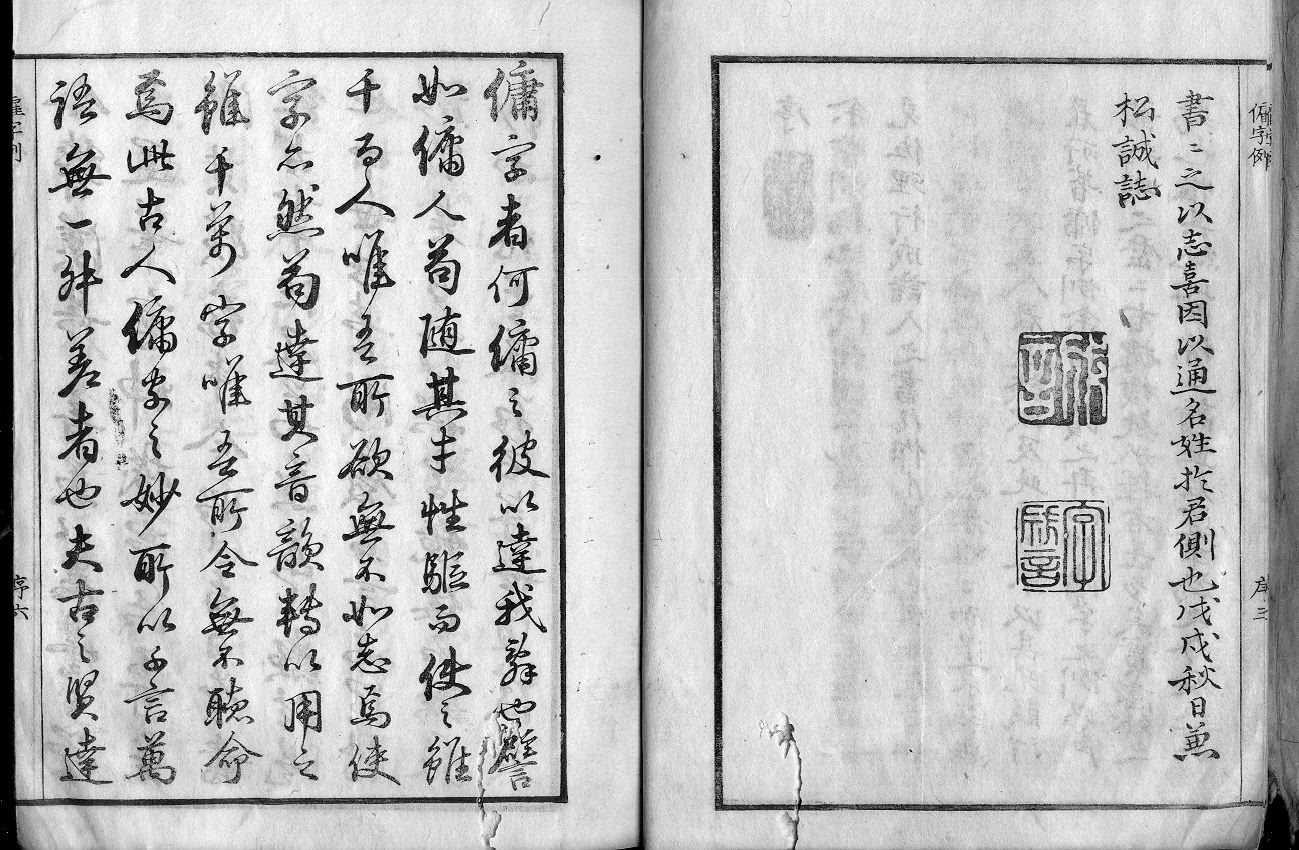 傭字例
序三
書〻之以志喜因以通名姓於君側也戊戌秋日兼
松誠誌
傭字者何傭之彼以達我辭也譬
如傭人苟随其才性駆而使之雖
千百人唯吾所欲無不如志焉使
字亦然苟達其音韻轉以用之
雖千万字唯吾所令無不聴命
焉此古人傭字之妙所以千言萬
語無一舛差者也夫古之賢達
序六